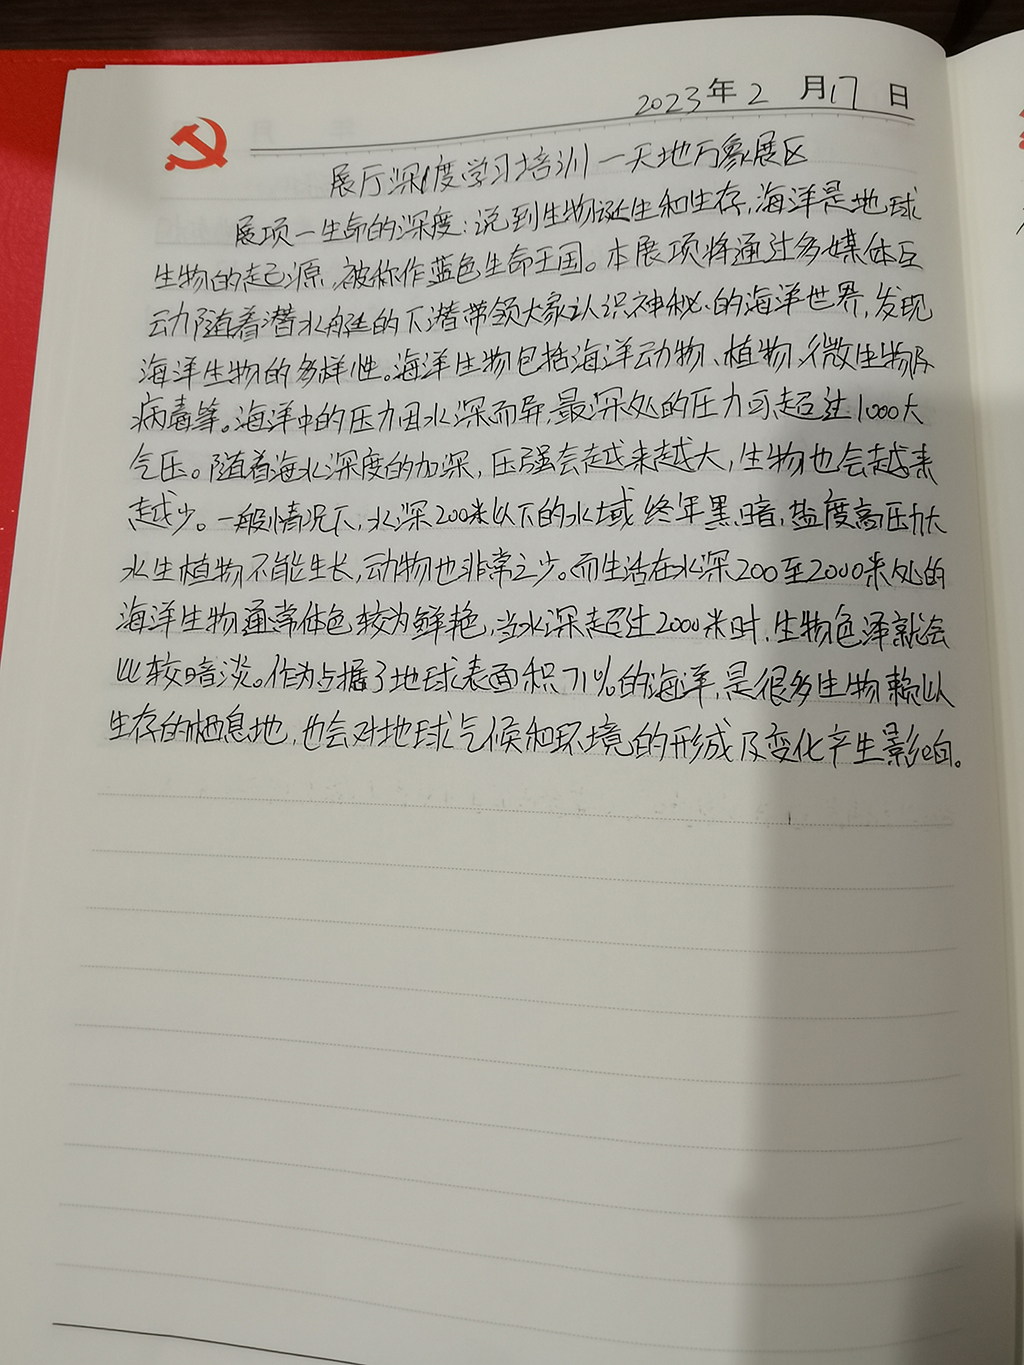 2023年2月17日
展厅深度学习培训—天地万象展区
展项—生命的深度:说到生物诞生和生存,海洋是地球
生物的起源,被称作蓝色生命王国。本展项将通过多媒体互
动随着潜水艇的下潜带领大家认识神秘的海洋世界,发现
海洋生物的多样性。海洋生物包括海洋动物、植物、微生物及
病毒等。海洋中的压力因水深而异,最深处的压力可超过1000大
气压。随着海水深度的加深,压强会越来越大,生物也会越来
越少。一般情况下,水深200米以下的水域终年黑暗,盐度高压力大
水生植物不能生长,动物也非常之少。而生活在水深200至2000米处的
海洋生物通常体色较为鲜艳,当水深超过2000米时,生物色泽就会
比较暗淡。作为占据了地球表面积71%的海洋,是很多生物赖以
生存的栖息地,也会对地球气候和环境的形成及变化产生影响。